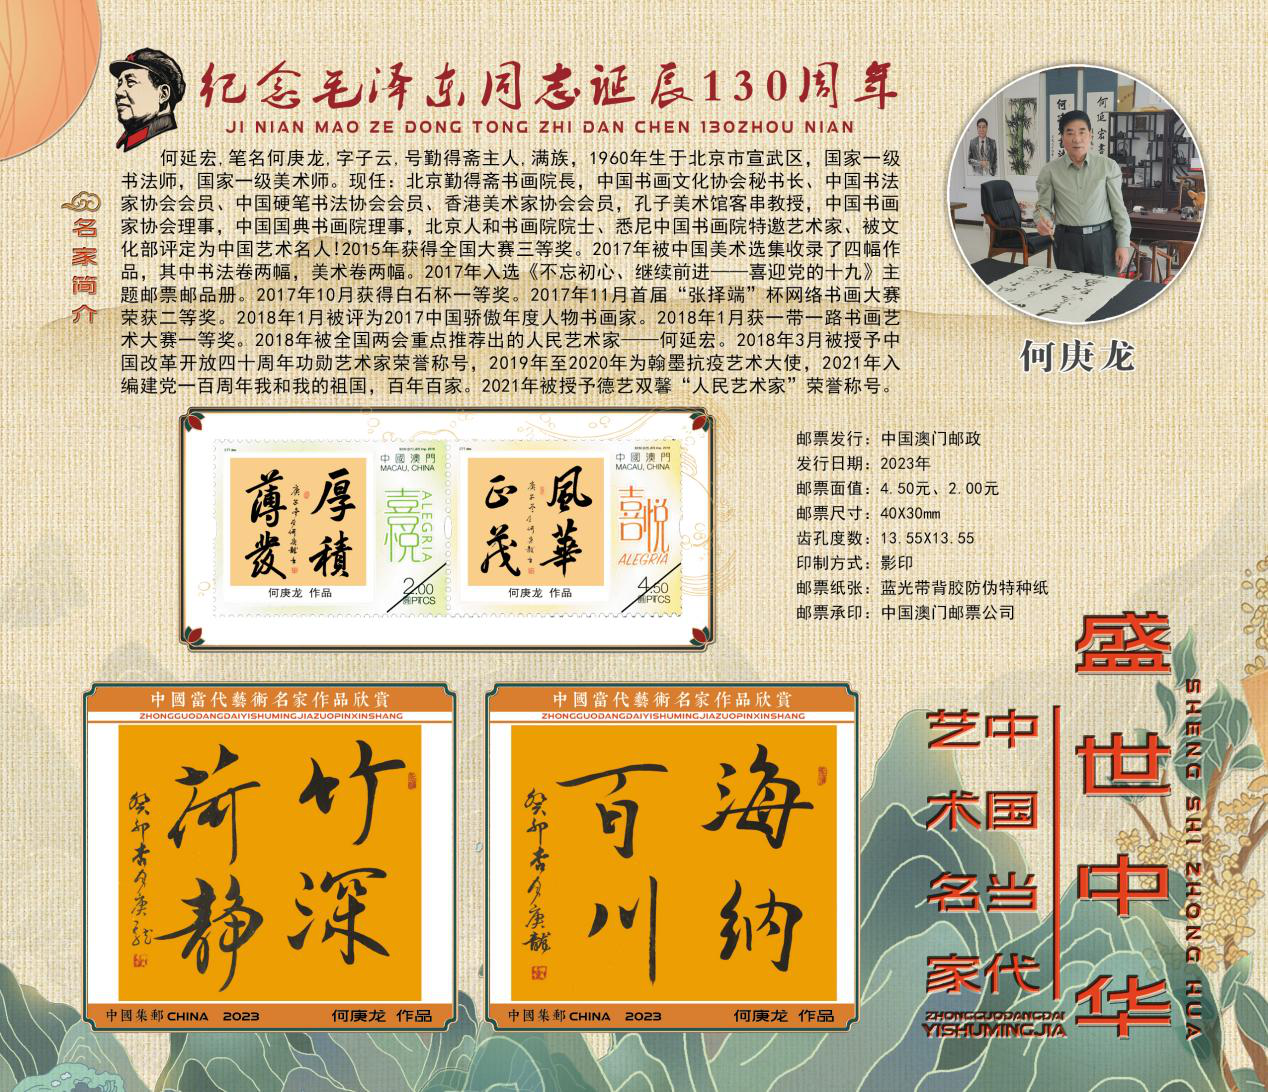 纪念毛泽东同志诞辰130周年
JI NIAN MAO ZE DONG TONG ZHI DAN CHEN 130ZHOU NIAN
名家简介
何延宏,笔名何庚龙,字子云,号勤得斋主人,满族，1960年生于北京市宣武区，国家一级
书法师，国家一级美术师。现任：北京勤得斋书画院長，中国书画文化协会秘书长、中国书法
家协会会员、中国硬笔书法协会会员、香港美术家协会会员，孔子美术馆客串教授，中国书画
家协会理事，中国国典书画院理事，北京人和书画院院士、悉尼中国书画院特邀艺术家、被文
化部评定为中国艺术名人!2015年获得全国大赛三等奖。2017年被中国美术选集收录了四幅作
品，其中书法卷两幅，美术卷两幅。2017年入选《不忘初心、继续前进——喜迎党的十九》主
题邮票邮品册。2017年10月获得白石杯一等奖。2017年11月首届“张择端”杯网络书画大赛
荣获二等奖。2018年1月被评为2017中国骄傲年度人物书画家。2018年1月获一带一路书画艺
术大赛一等奖。2018年被全国两会重点推荐出的人民艺术家——何延宏。2018年3月被授予中
国改革开放四十周年功勋艺术家荣誉称号，2019年至2020年为翰墨抗疫艺术大使，2021年入
编建党一百周年我和我的祖国，百年百家。2021年被授予德艺双馨“人民艺术家”荣誉称号。
何延宏書
何庚龙
厚積
薄發
何庚龙 作品
中國澳門
MACAU, CHINA
喜悦
ALEGRIA
2.00
圓PTCS
風華
正茂
何庚龙 作品
中國澳門
MACAU, CHINA
喜悦
ALEGRIA
4.50
圓PTCS
邮票发行：中国澳门邮政
发行日期：2023年
邮票面值：4.50元、2.00元
邮票尺寸：40X30mm
齿孔度数：13.55X13.55
印制方式：影印
邮票纸张：蓝光带背胶防伪特种纸
邮票承印：中国澳门邮票公司
中國當代藝術名家作品欣賞
ZHONGGUODANGDAIYISHUMINGJIAZUOPINXINSHANG
竹深
荷静
癸卯杏月庚龙
中國集郵 CHINA 2023
何庚龙 作品
中國當代藝術名家作品欣賞
ZHONGGUODANGDAIYISHUMINGJIAZUOPINXINSHANG
海纳
百川
癸卯杏月庚龍
中國集郵 CHINA 2023
何庚龙 作品
盛世中华
SHENG SHI ZHONG HUA
中国当代
艺术名家
ZHONGGUODANGDAI
YISHUMINGJIA